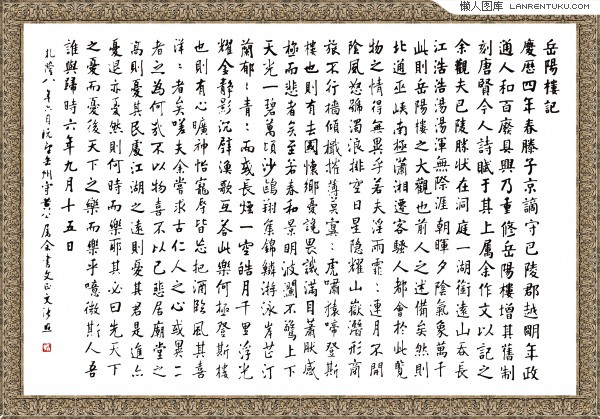 懒人图库 LANRENTUKU.COM
岳陽樓記
慶曆四年春滕子京謫守巴陵郡越明年政
通人和百廢具興乃重修岳陽樓增其舊制
刻唐賢今人詩賦于其上屬余作文以記之
余觀夫巴陵勝狀在洞庭一湖銜遠山吞長
江浩浩湯湯渾無際涯朝暉夕陰氣象萬千
此則岳陽樓之大觀也前人之述備矣然則
北通巫峽南極瀟湘遷客騷人都會於此覽
物之情得無異乎若夫淫雨霏:連月不開
陰風怒號濁浪排空日星隱耀山嶽潛形商
旅不行檣傾楫摧薄暮冥:虎嘯猿啼登斯
樓也則有去國懷鄉憂讒畏譏滿目蕭然感
極而悲者矣至若春和景明波瀾不驚上下
天光一碧萬頃沙鷗翔集錦鱗游泳岸芷汀
蘭郁:青:而或長煙一空皓月千里浮光
耀金靜影沉璧漁歌互答此樂何極登斯樓
也則有心曠神怡寵辱皆忘把酒臨風其喜
洋:者矣嗟夫余嘗求古仁人之心或異二
者之為何哉不以物喜不以己悲居廟堂之
高則憂其民處江湖之遠則憂其君是進亦
憂退亦憂然則何時而樂耶其必曰先天下
之憂而憂後天下之樂而樂乎噫微斯人吾
誰與歸時六年九月十五日